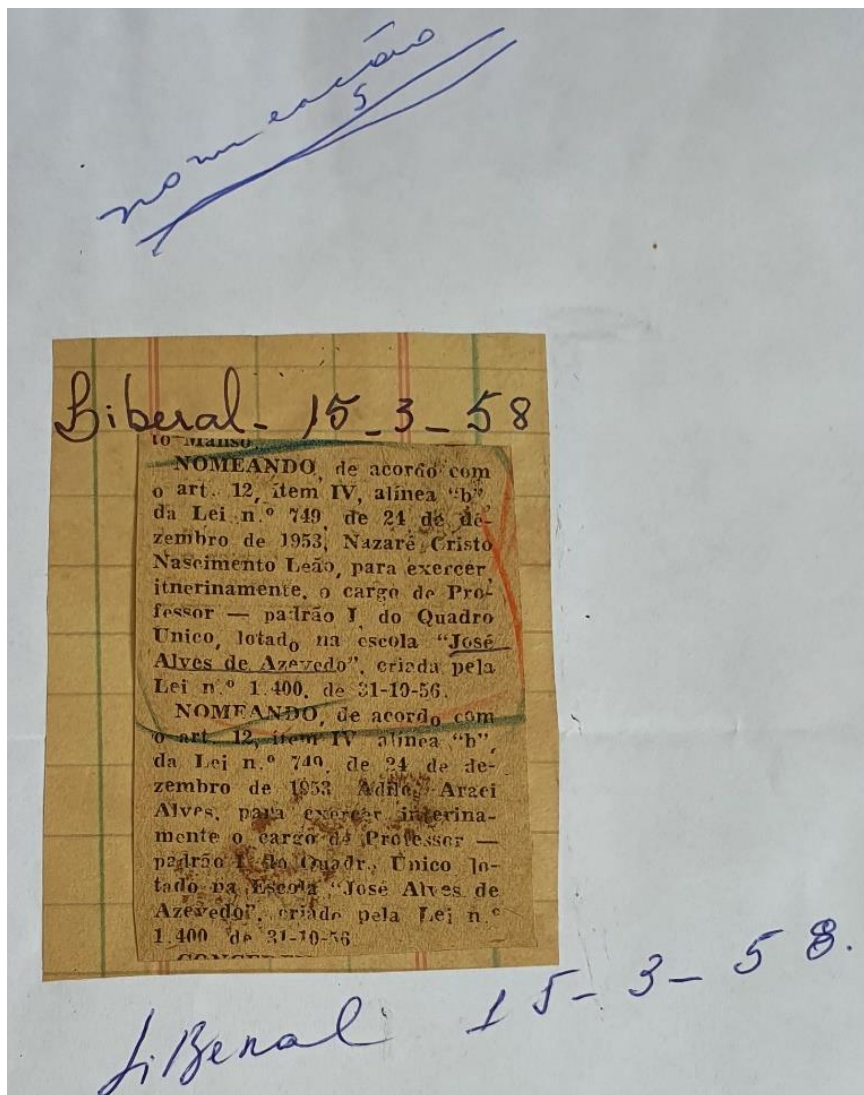 nomeação
5
Liberal - 15-3-58
to Manso.
NOMEANDO, de acordo com
o art. 12, ítem IV, alínea "b"
da Lei n.º 749, de 24 de de-
zembro de 1953, Nazaré Cristo
Nascimento Leão, para exercer,
itnerinamente, o cargo de Pro-
fessor — padrão I, do Quadro
Único, lotado na escola "José
Alves de Azevedo", criada pela
Lei n.º 1.400, de 31-10-56.
NOMEANDO, de acordo com
o art. 12, ítem IV alínea "b",
da Lei n.º 749, de 24 de de-
zembro de 1953 Araci
Alves, para exercer interina-
mente o cargo de Professor —
padrão I do Quadr. Único lo-
tado na Escola "José Alves de
Azevedo", criado pela Lei n.º
1.400 de 31-10-56
LiBeral 15-3-58.